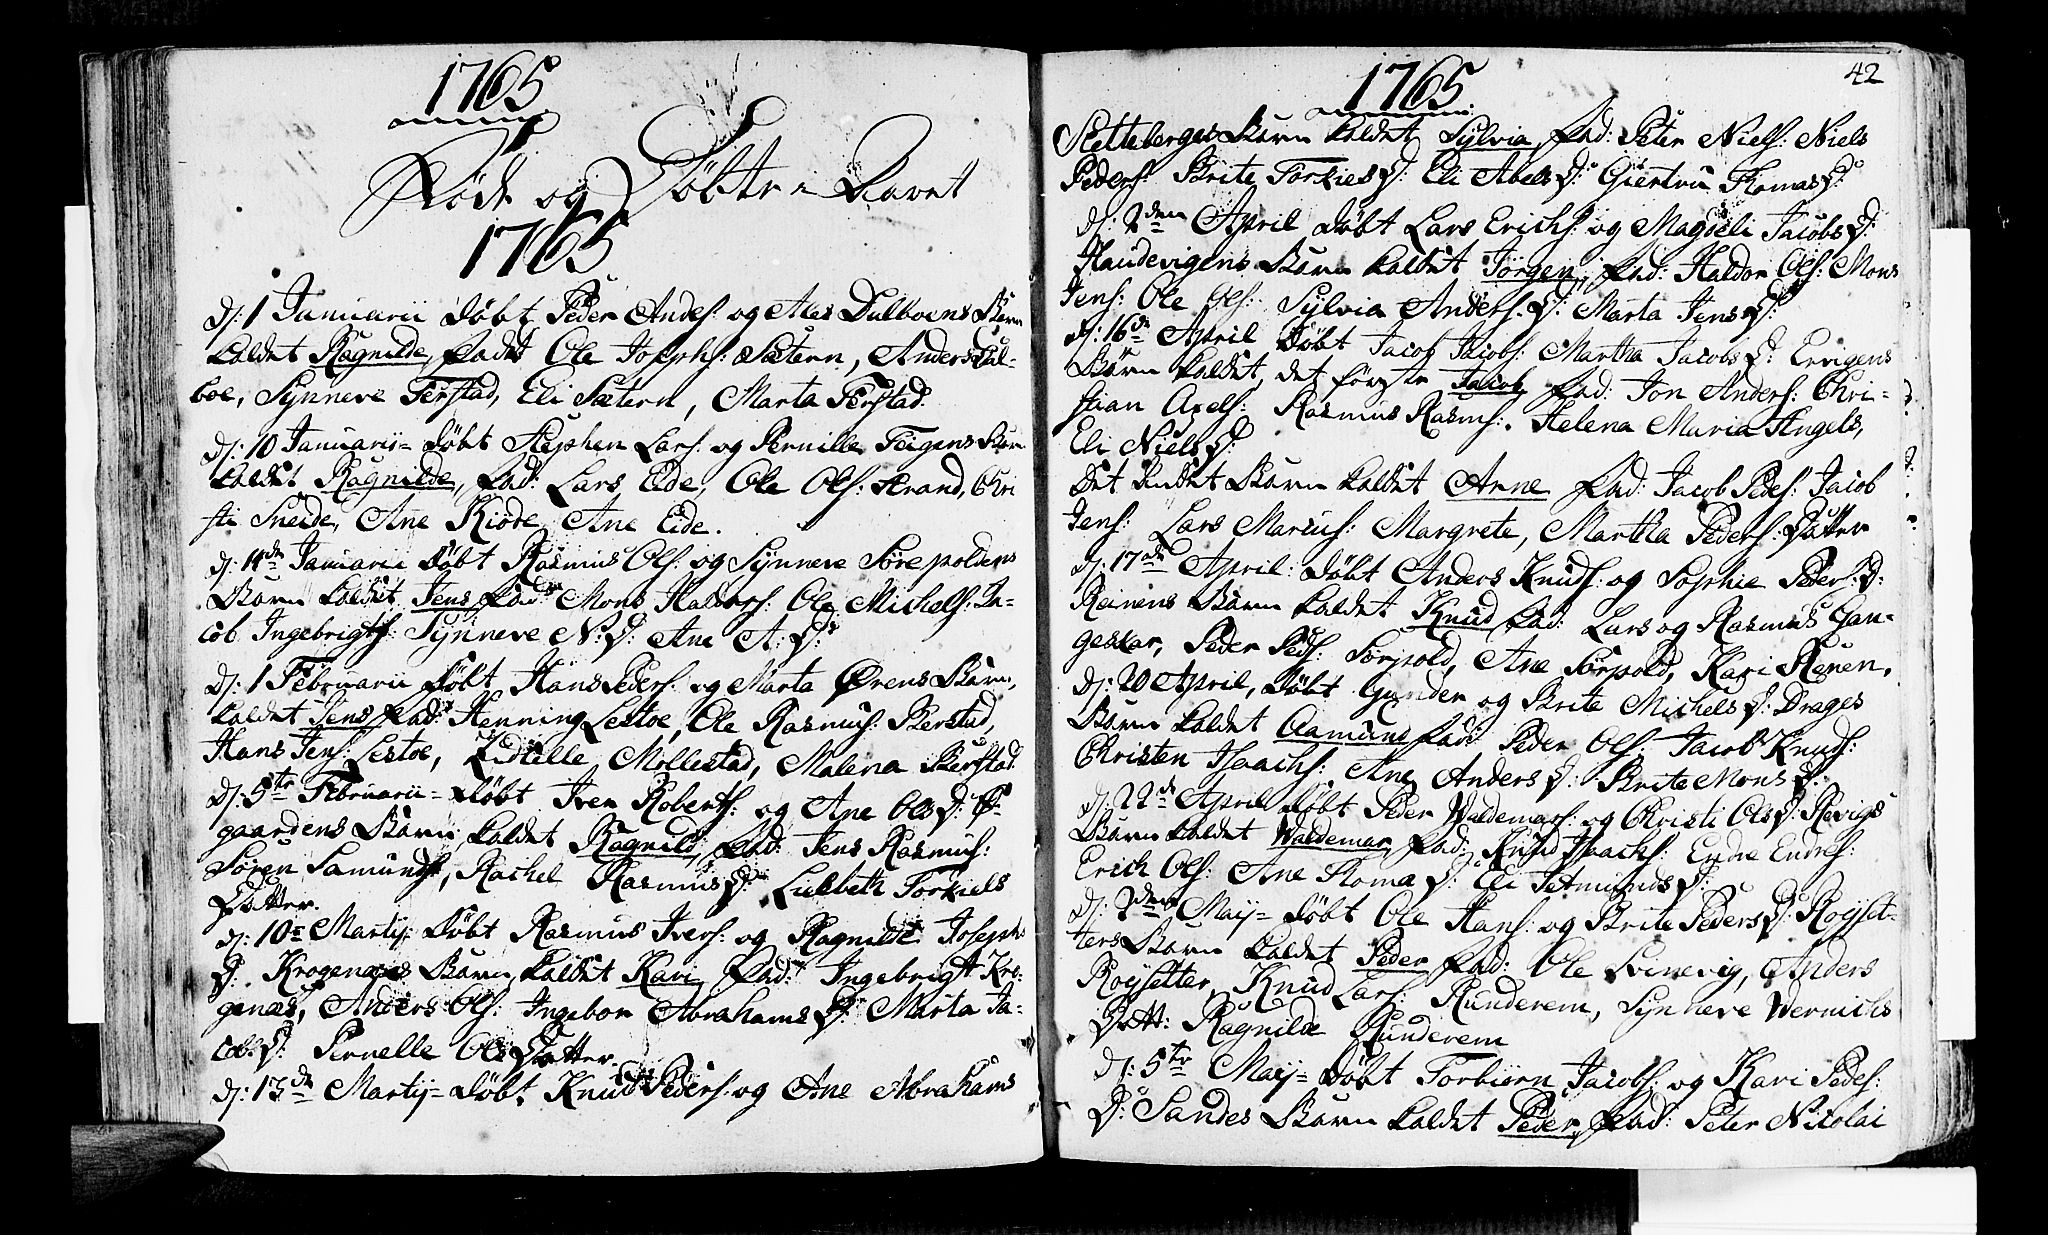 1765
Fødte og Døbte i Aaret
1765
D: 1 Januarii døbt Peder Anders: og Ales Dulboens Barn
kaldet Ragnilde, fad: Ole Joseph: Sætern, Anders Dul-
boe, Synneve Ferstad, Eli Sætern, Marta Ferstad.
D: 10 Januarii døbt Stephen Lars: og Pernille Feigens Barn
kaldet Ragnilde, fad: Lars Eide, Ole Ols: Strand, Chri
sti Sneide, Ane Kiøde, Ane Eide.
D: 11de Januarii døbt Rasmus Ols: og Synneve Sørepoldens
Barn kaldet Jens fad: Mons Haldors: Ole Michels: Ja-
cob Ingebrigts: Synneve N: D: Ane A: D:
D: 1 Februarii døbt Hans Peders: og Marta Ørens Barn,
kaldet Jens fad: Henning Lestoe, Ole Rasmus: Berstad,
Hans Jens: Lestoe, Mollestad, Malena Berstad.
D: 5te Februarii døbt Iver Roberts: og Ane Ols D:
gaardens Barn kaldet Ragnild, fad: Jens Rasmus:
Søren Samunds:, Rachel Rasmus D: Lisbeth Torkiels
Datter.
D: 10e Martij døbt Rasmus Ivers: og Ragnilde Josephs
D: Krogenæs Barn kaldet Kari fad: Ingebrigt Kro-
genæs, Anders Ols: Ingebor Abrahams D: Marta Ja-
cobs D: Pernelle Ols Datter.
D: 13de Martij døbt Knud Peders: og Ane Abrahams
42
1765
Sætteberges Barn kaldet Sylvia, fad: Peter Niels: Niels
Peders: Brite Torkiels D: Eli Abels D: Giertru Thomas D:
D: 2den April døbt Lars Erichs: og Magdeli Jacobs D:
Haudevigens Barn kaldet Jørgen, fad: Haldor Ols: Mons
Jens: Ole Ols: Sylvia Anders: D: Marta Jens D:
D: 16de April døbt Jacob Jacobs: Martha Jacobs D: Ervigens
Børn kaldet, det første Jacob fad: Jon Anders: Chri-
stian Axels: Rasmus Rasms: Helena Maria Angels,
Eli Niels D:
Det andet Barn kaldet Anne fad: Jacob Peders: Jacob
Jens: Lars Marius: Margrete, Martha Peders: Datter
D: 17de April: døbt Anders Knuds: og Sophie Peders: D:
Reinens Barn kaldet Knud fad: Lars og Rasmus Gan-
geskar, Peder Peds: Sørpold, Ane Sørpold, Kari Renen.
D: 20 April, døbt Gunder og Brite Michels D: Drages
Barn kaldet Aamund fad: Peder Ols: Jacob Knuds:
Christen Isaachs: Ane Anders D: Brite Mons D:
D: 22de April døbt Peder Waldemars: og Christi Ols D: Revigs
Barn kaldet Waldemar, fad: Knud Isaachs: Endre Endres:
Erich Ols: Ane Thoma D: Eli Tetmunds D:
D: 2den Maij døbt Ole Hans: og Brite Peders D: Roysæt-
ters Barn kaldet Peder fad: Ole Svinevig, Anders
Roysetter, Knud Lars: Runderem, Synneve Wernichs
Datt: Ragnilde Runderem
D: 5te Maij døbt Torbiørn Jacobs: og Kari Peders:
D: Sandes Barn kaldet Peder, fad: Peter Nicolai